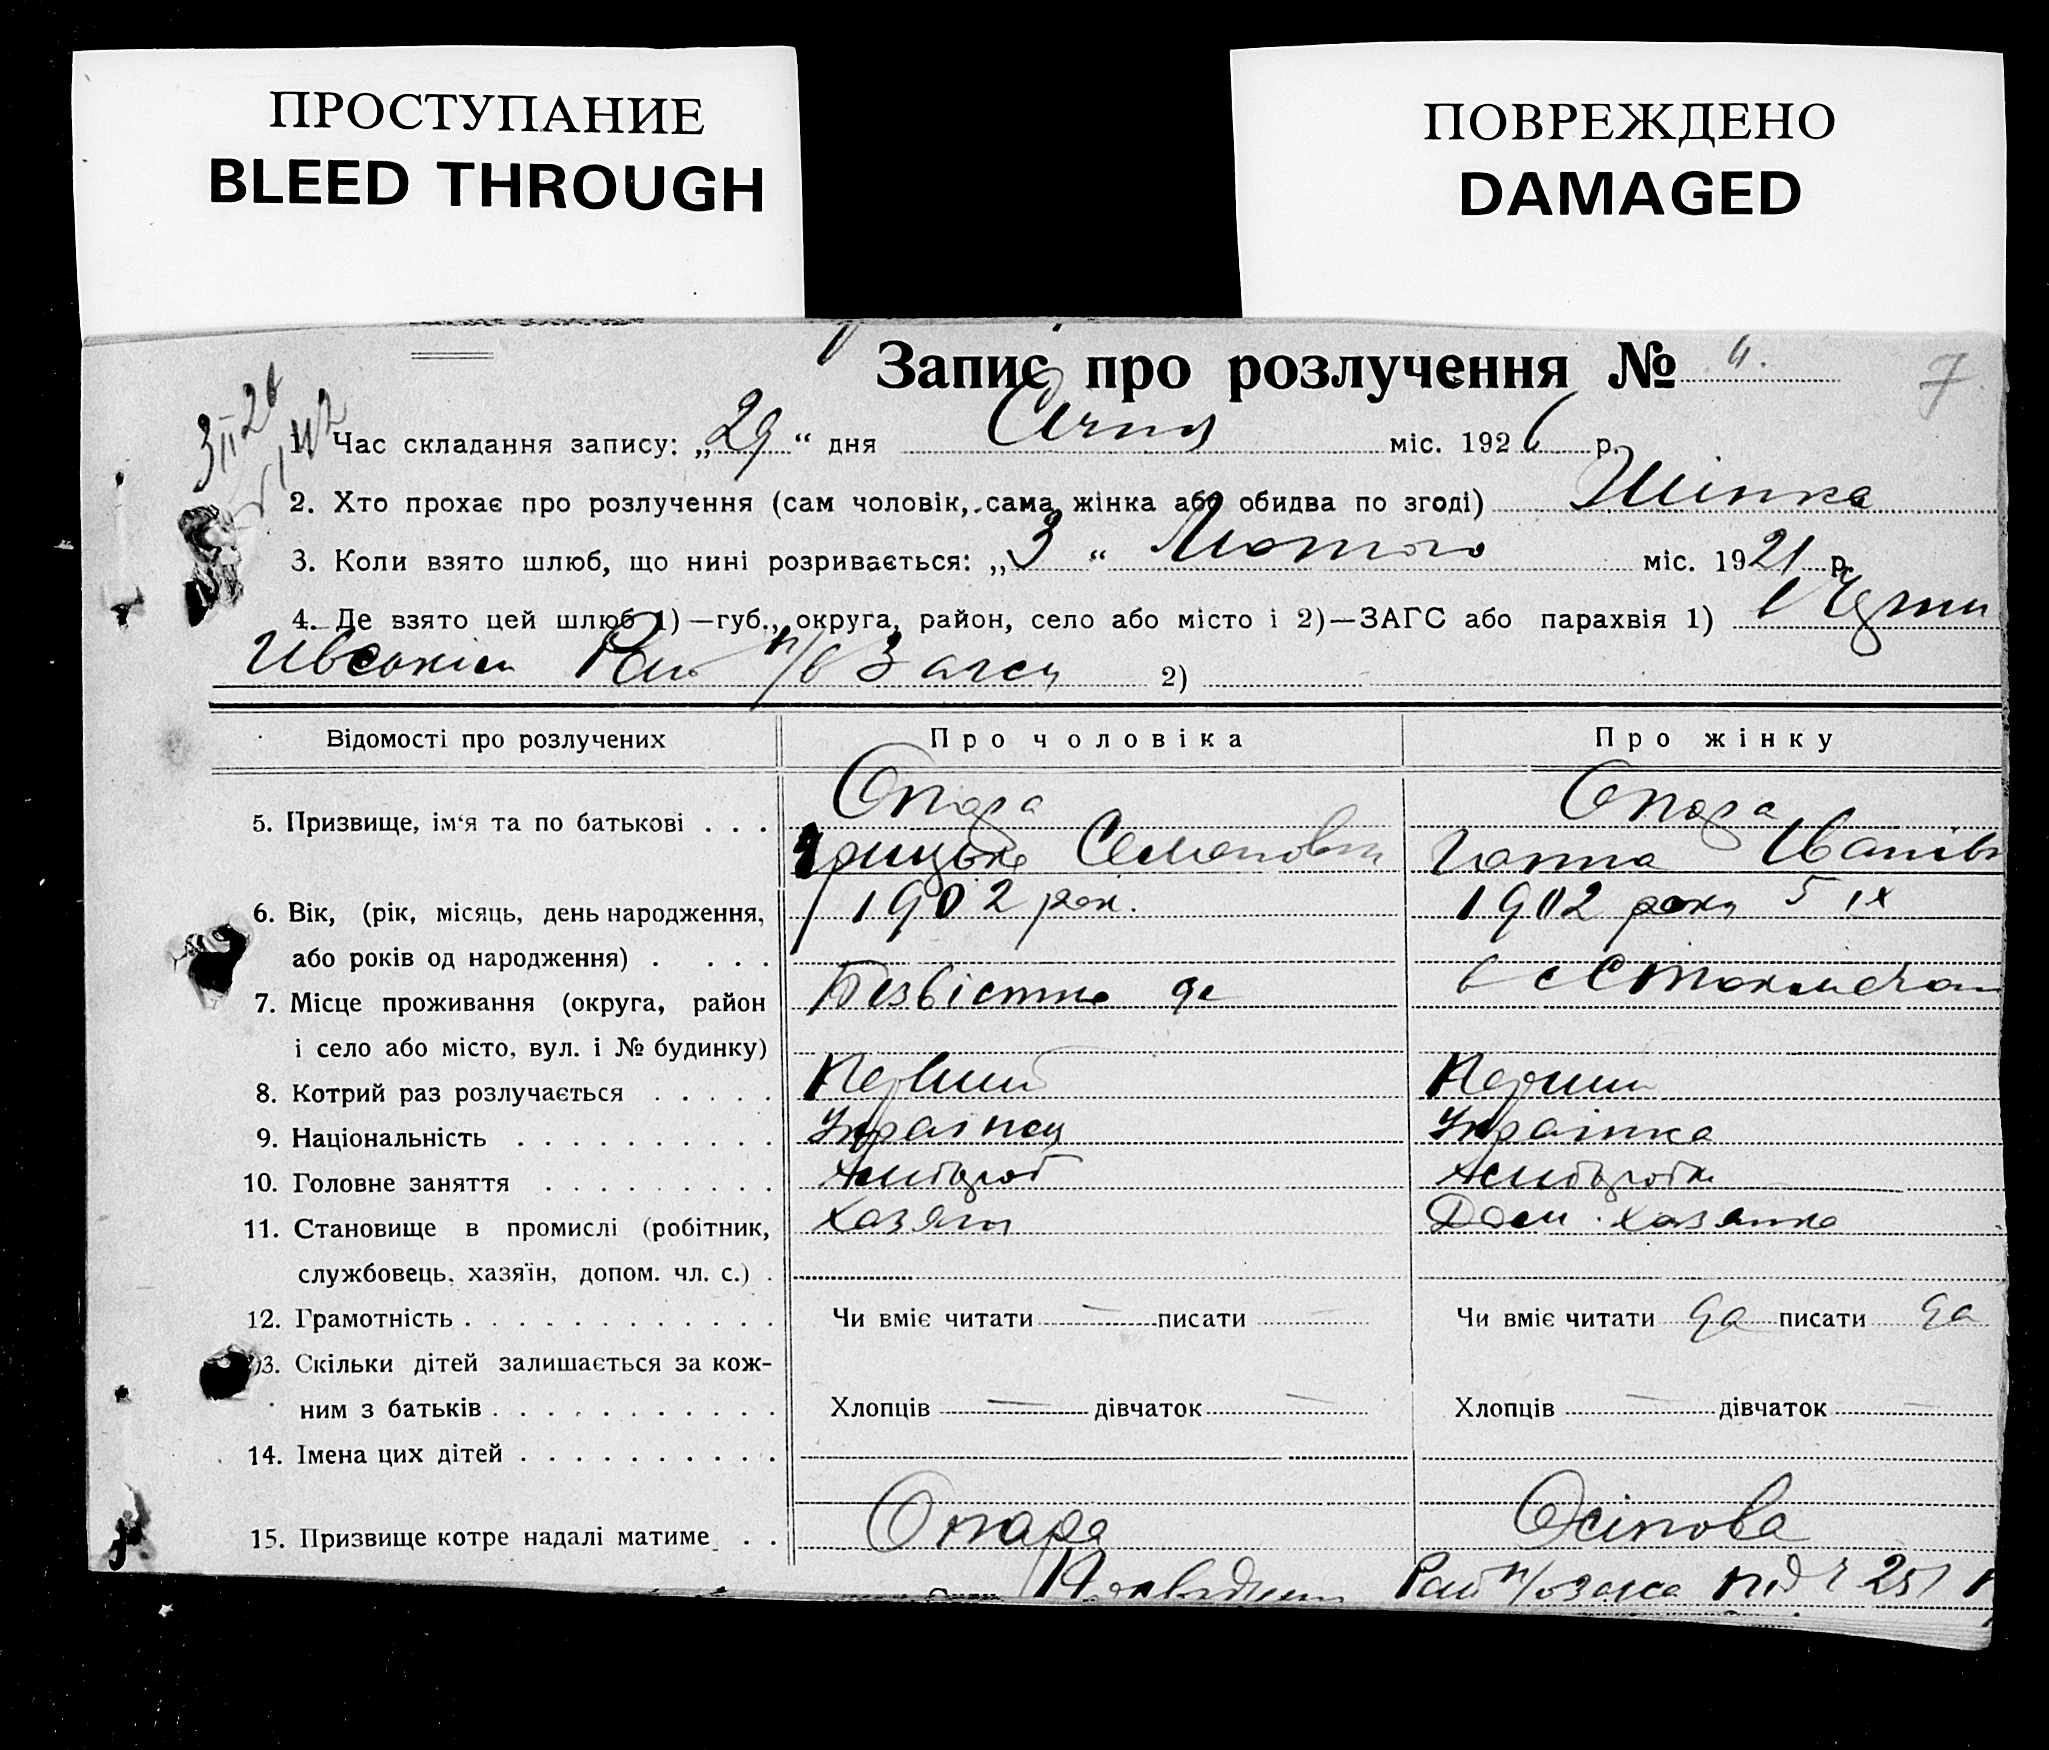 ПРОСТУПАНИЕ
BLEED THROUGH
ПОВРЕЖДЕНО
DAMAGED
Запис про розлучення № 4. 7
1. Час складання запису: „29“ дня Січня міс. 1926 р.
2. Хто прохає про розлучення (сам чоловік, сама жінка або обидва по згоді) Жінка
3. Коли взято шлюб, що нині розривається: „3“ Лютого міс. 1921 р.
4. Де взято цей шлюб 1)—губ., округа, район, село або місто і 2)—ЗАГС або парахвія 1)
Рай п/в Загсу 2)
Відомості про розлучених Про чоловіка Про жінку
Опара Опара
5. Призвище, ім‘я та по батькові . . . Грицько Семенович Ганна Іванів
6. Вік, (рік, місяць, день народження, 1902 рок. 1902 року 5 IX
або років од народження) . . . .
7. Місце проживання (округа, район Безвістно де в с
і село або місто, вул. і № будинку)
8. Котрий раз розлучається . . . . . Перший Перший
9. Національність . . . . . . . . . . Українец Українка
10. Головне заняття . . . . . . . . . хлібороб хліборобка
11. Становище в промислі (робітник, хазяїн Дом. хазяйка
службовець, хазяїн, допом. чл. с.) .
12. Грамотність . . . . . . . . . . . . Чи вміє читати — писати — Чи вміє читати да писати да
13. Скільки дітей залишається за кож-
ним з батьків . . . . . . . . . . . Хлопців — дівчаток — Хлопців — дівчаток —
14. Імена цих дітей . . . . . . . . . .
15. Призвище котре надалі матиме . . Опара Осіпова
Рай п/в загса під ч 251